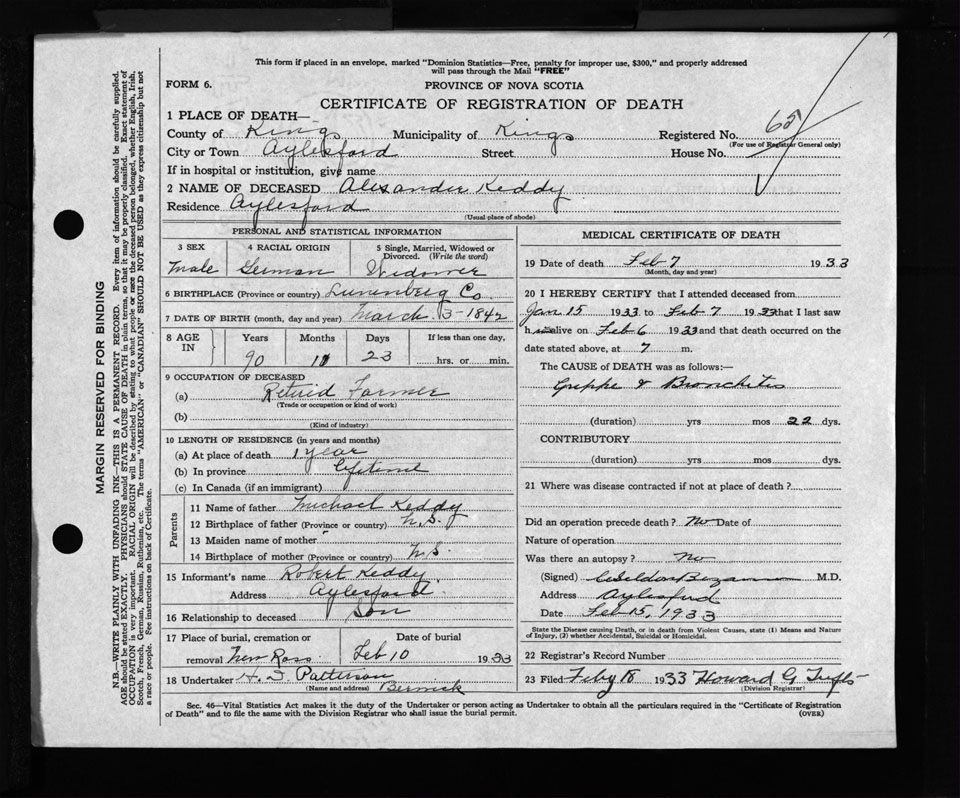 This form if placed in an envelope, marked "Dominion Statistics—Free, penalty for improper use, $300," and properly addressed
will pass through the Mail "FREE"
FORM 6.
PROVINCE OF NOVA SCOTIA
CERTIFICATE OF REGISTRATION OF DEATH
1 PLACE OF DEATH—
County of Kings Municipality of Kings Registered No. 65
(For use of Registrar General only)
City or Town Aylesford Street House No.
If in hospital or institution, give name
2 NAME OF DECEASED Alexander Keddy
Residence Aylesford
(Usual place of abode)
PERSONAL AND STATISTICAL INFORMATION
3 SEX 4 RACIAL ORIGIN 5 Single, Married, Widowed or
Divorced. (Write the word)
Male German Widower
6 BIRTHPLACE (Province or country) Lunenberg Co.
7 DATE OF BIRTH (month, day and year) March 13-1842
8 AGE IN Years Months Days If less than one day,
90 11 23 hrs. or min.
9 OCCUPATION OF DECEASED
(a) Retired Farmer
(Trade or occupation or kind of work)
(b)
(Kind of industry)
10 LENGTH OF RESIDENCE (in years and months)
(a) At place of death 1 year
(b) In province lifetime
(c) In Canada (if an immigrant)
Parents
11 Name of father Michael Keddy
12 Birthplace of father (Province or country) N.S.
13 Maiden name of mother "
14 Birthplace of mother (Province or country) N.S.
15 Informant's name Robert Keddy
Address Aylesford
16 Relationship to deceased Son
17 Place of burial, cremation or Date of burial
removal New Ross Feb 10 1933
18 Undertaker H. Patterson
(Name and address) Berwick
MEDICAL CERTIFICATE OF DEATH
19 Date of death Feb 7 1933
(Month, day and year)
20 I HEREBY CERTIFY that I attended deceased from
Jan 15 1933 to Feb 7 1933 that I last saw
him alive on Feb 6 1933 and that death occurred on the
date stated above, at 7 m.
The CAUSE OF DEATH was as follows:—
Grippe & Bronchitis
(duration) yrs mos 22 dys.
CONTRIBUTORY
(duration) yrs. mos. dys.
21 Where was disease contracted if not at place of death?
Did an operation precede death? No Date of
Nature of operation
Was there an autopsy? No
(Signed) M.D.
Address Aylesford
Date Feb 15, 1933
State the Disease causing Death, or in death from Violent Causes, state (1) Means and Nature
of Injury, (2) whether Accidental, Suicidal or Homicidal.
22 Registrar's Record Number
23 Filed Feby 18 1933 Howard G
(Division Registrar)
Sec. 46—Vital Statistics Act makes it the duty of the Undertaker or person acting as Undertaker to obtain all the particulars required in the "Certificate of Registration
of Death" and to file the same with the Division Registrar who shall issue the burial permit.
(OVER)
MARGIN RESERVED FOR BINDING
N.B.—WRITE PLAINLY WITH UNFADING INK—THIS IS A PERMANENT RECORD. Every item of information should be carefully supplied.
AGE should be stated EXACTLY. PHYSICIANS should STATE CAUSE OF DEATH in plain terms, so that it may be properly classified. Exact statement of
OCCUPATION is very important. RACIAL ORIGIN will be described by stating to what people or race the deceased person belonged, whether English, Irish,
Scotch, French, German, Russian, Ruthenian, etc. The terms "AMERICAN" or "CANADIAN" SHOULD NOT BE USED as they express citizenship but not
a race or people. See instructions on back of Certificate.